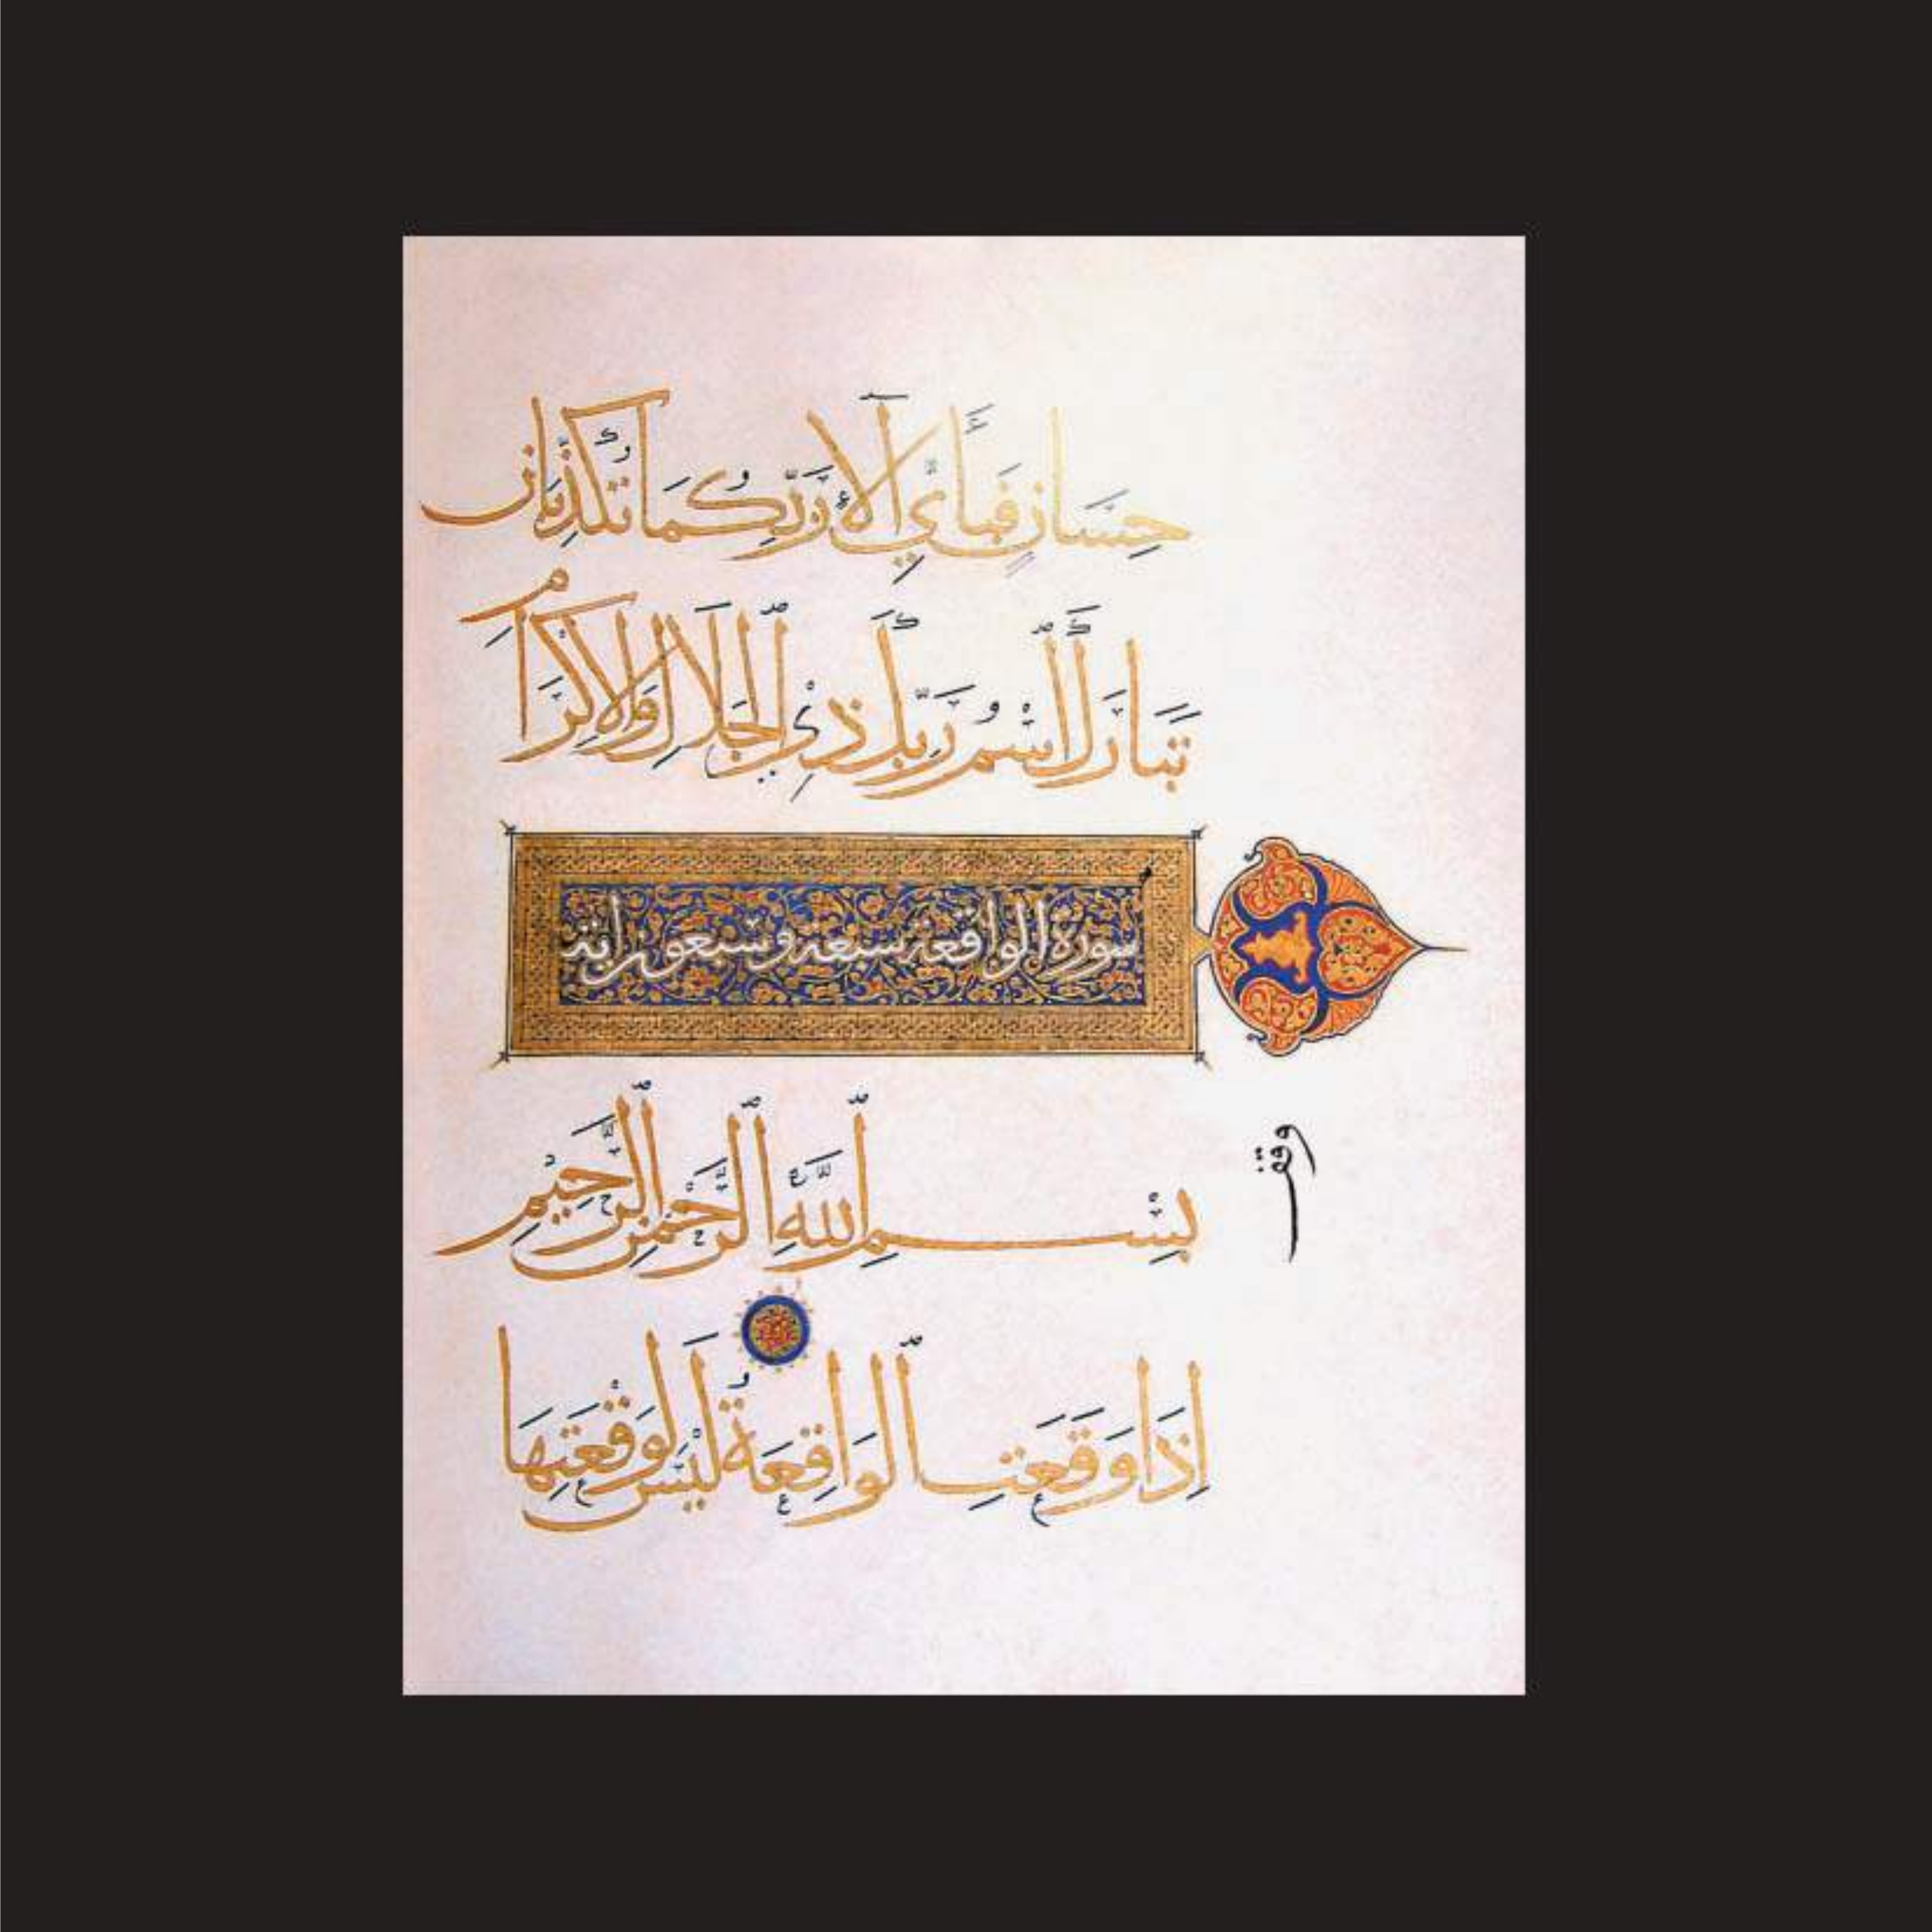 حِسَانٍ فَبِأَيِّ آلَاءِ رَبِّكُمَا تُكَذِّبَانِ
تَبَارَكَ اسْمُ رَبِّكَ ذِي الْجَلَالِ وَالْإِكْرَامِ
سورة الواقعة سبعة وسبعون اية
بِسْمِ اللَّهِ الرَّحْمَنِ الرَّحِيمِ
وقف
إِذَا وَقَعَتِ الْوَاقِعَةُ لَيْسَ لِوَقْعَتِهَا